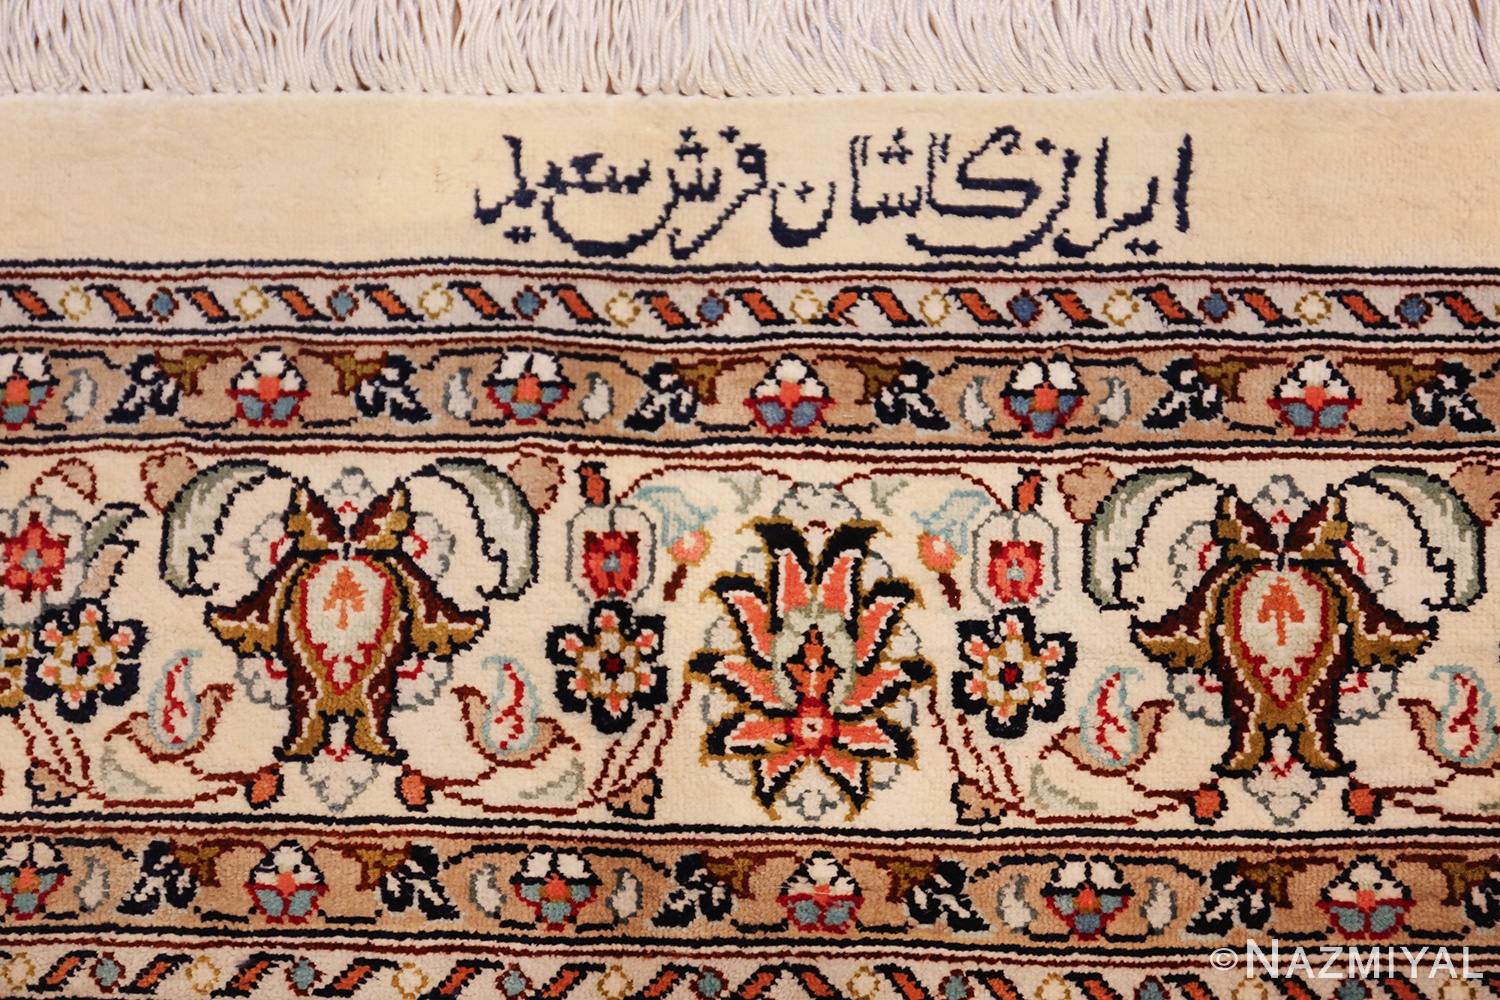 ایران کاشان فرش سعید
© NAZMIYAL